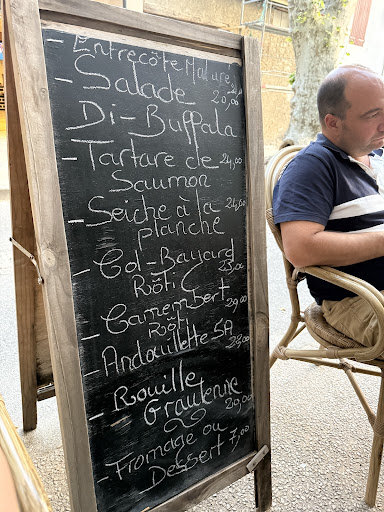 - Entrecôte Mature
- Salade 20,00
Di-Buffala
- Tartare de 24,00
Saumon
- Seiche à la
planche
- Col-Bayard
Rôti 23,00
- Camembert
Rôti
- Andouillette 5A
- Rouille
Graulenne
- Fromage ou
Dessert 7,00